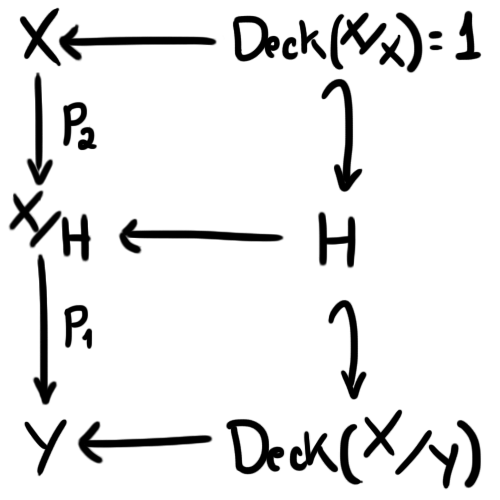 X Deck(X/X)=1
P₂
X/H H
P₁
Y Deck(X/Y)